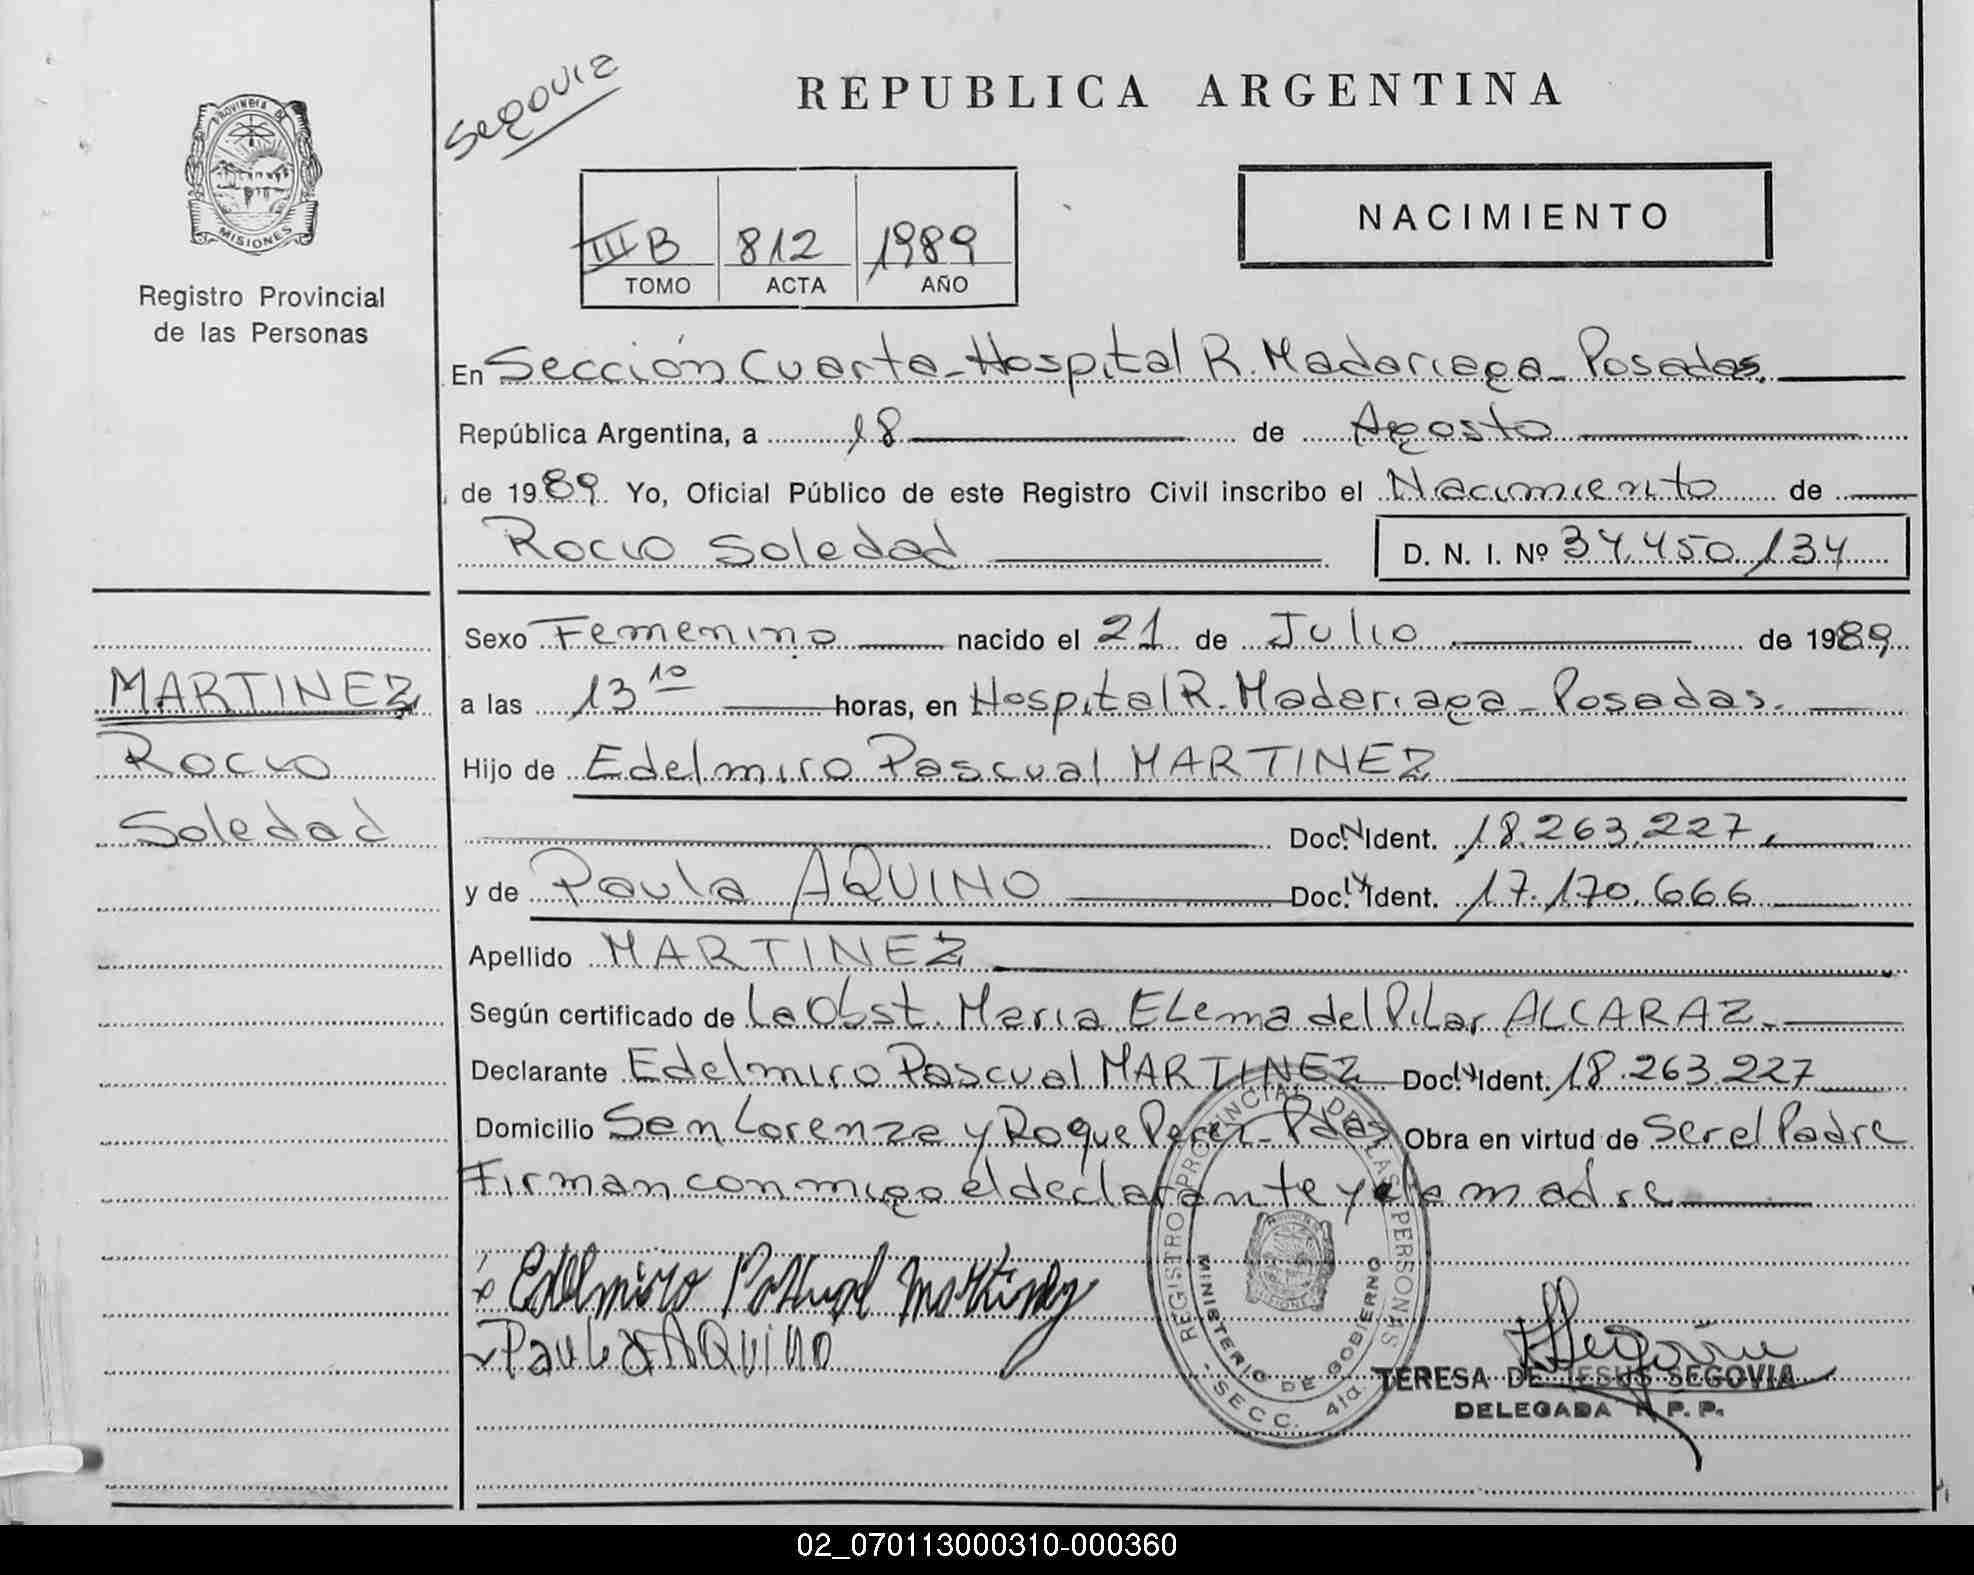 Segovia
REPUBLICA ARGENTINA
PROVINCIA DE
MISIONES
Registro Provincial
de las Personas
III B 812 1989
TOMO ACTA AÑO
NACIMIENTO
En Sección Cuarta - Hospital R. Madariaga - Posadas.
República Argentina, a 18 de Agosto
de 1989. Yo, Oficial Público de este Registro Civil inscribo el Nacimiento de
Rocio Soledad D. N. I. Nº 34.450.134
Sexo Femenino nacido el 21 de Julio de 1989
MARTINEZ
Rocio
Soledad
a las 13 10 horas, en Hospital R. Madariaga - Posadas.
Hijo de Edelmiro Pascual MARTINEZ
Doc. N. Ident. 18.263.227.
y de Paula AQUINO Doc. N. Ident. 17.170.666
Apellido MARTINEZ
Según certificado de La Obst. Maria Elema del Pilar ALCARAZ.
Declarante Edelmiro Pascual MARTINEZ Doc. N. Ident. 18.263.227
Domicilio San Lorenzo y Roque Perez - Pdas Obra en virtud de Ser el Padre
Firman conmigo el declarante y la madre
Edelmiro Pascual Martinez
Paula Aquino
REGISTRO PROVINCIAL DE LAS PERSONAS
MINISTERIO DE GOBIERNO
- SECC. 4ta.
Segovia
TERESA DE JESUS SEGOVIA
DELEGADA R. P. P.
02_070113000310-000360